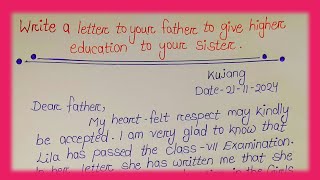 Write a letter to your father to give higher
education to your sister.
Kujang
Date-21-11-2024
Dear father,
My heart-felt respect may kindly
be accepted. I am very glad to know that
Lila has passed the class-VII Examination.
In her letter, she has written me that she
in the Girls